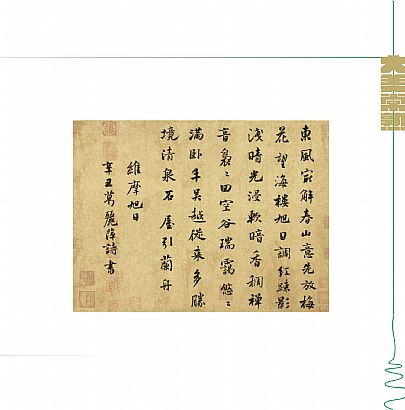 東風冣解春山意先放梅
花望海樓旭日調紅疎影
淺晴光浸軟暗香稠禪
音裊〻回空谷瑞靄悠〻
滿卧牛吴越從来多勝
境清泉石屋引蘭舟
維摩旭日
辛丑葛麗萍詩書
大美常熟